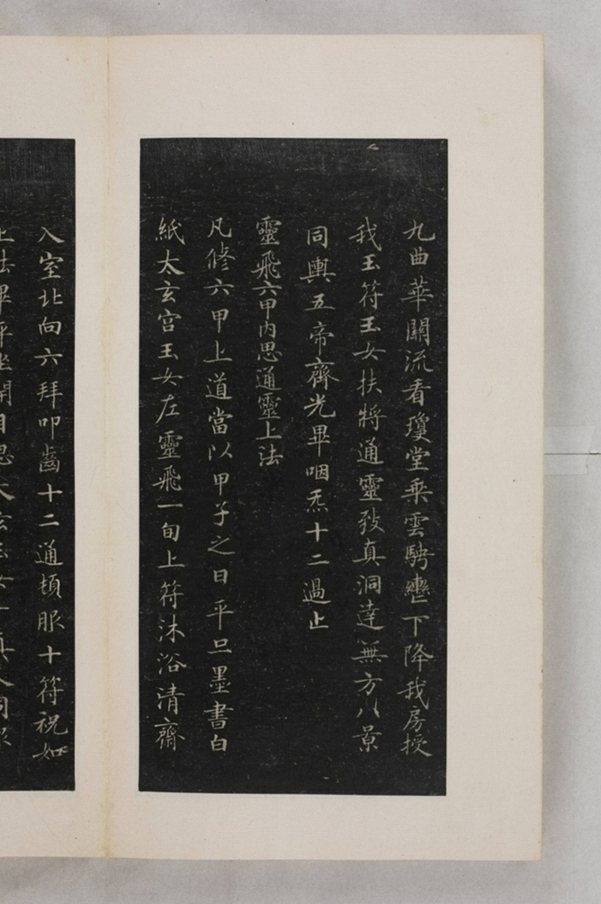 九曲華關流看瓊堂乘雲騁轡下降我房授
我玉符玉女扶將通靈致真洞達無方八景
同輿五帝齊光畢咽炁十二過止
靈飛六甲內思通靈上法
凡修六甲上道當以甲子之日平旦墨書白
紙太玄宮玉女左靈飛一旬上符沐浴清齋
入室北向六拜叩齒十二通頓服十符祝如
上法畢平坐閉目思太玄玉女十真人同服